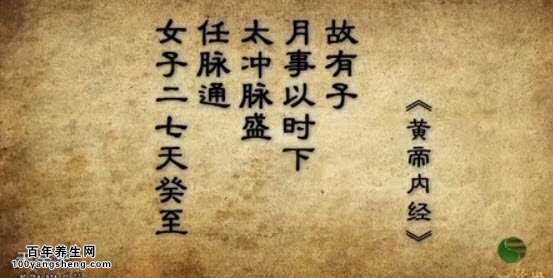 女子二七天癸至
任脉通
太冲脉盛
月事以时下
故有子
《黄帝内经》
百年养生网
100yangsheng.com